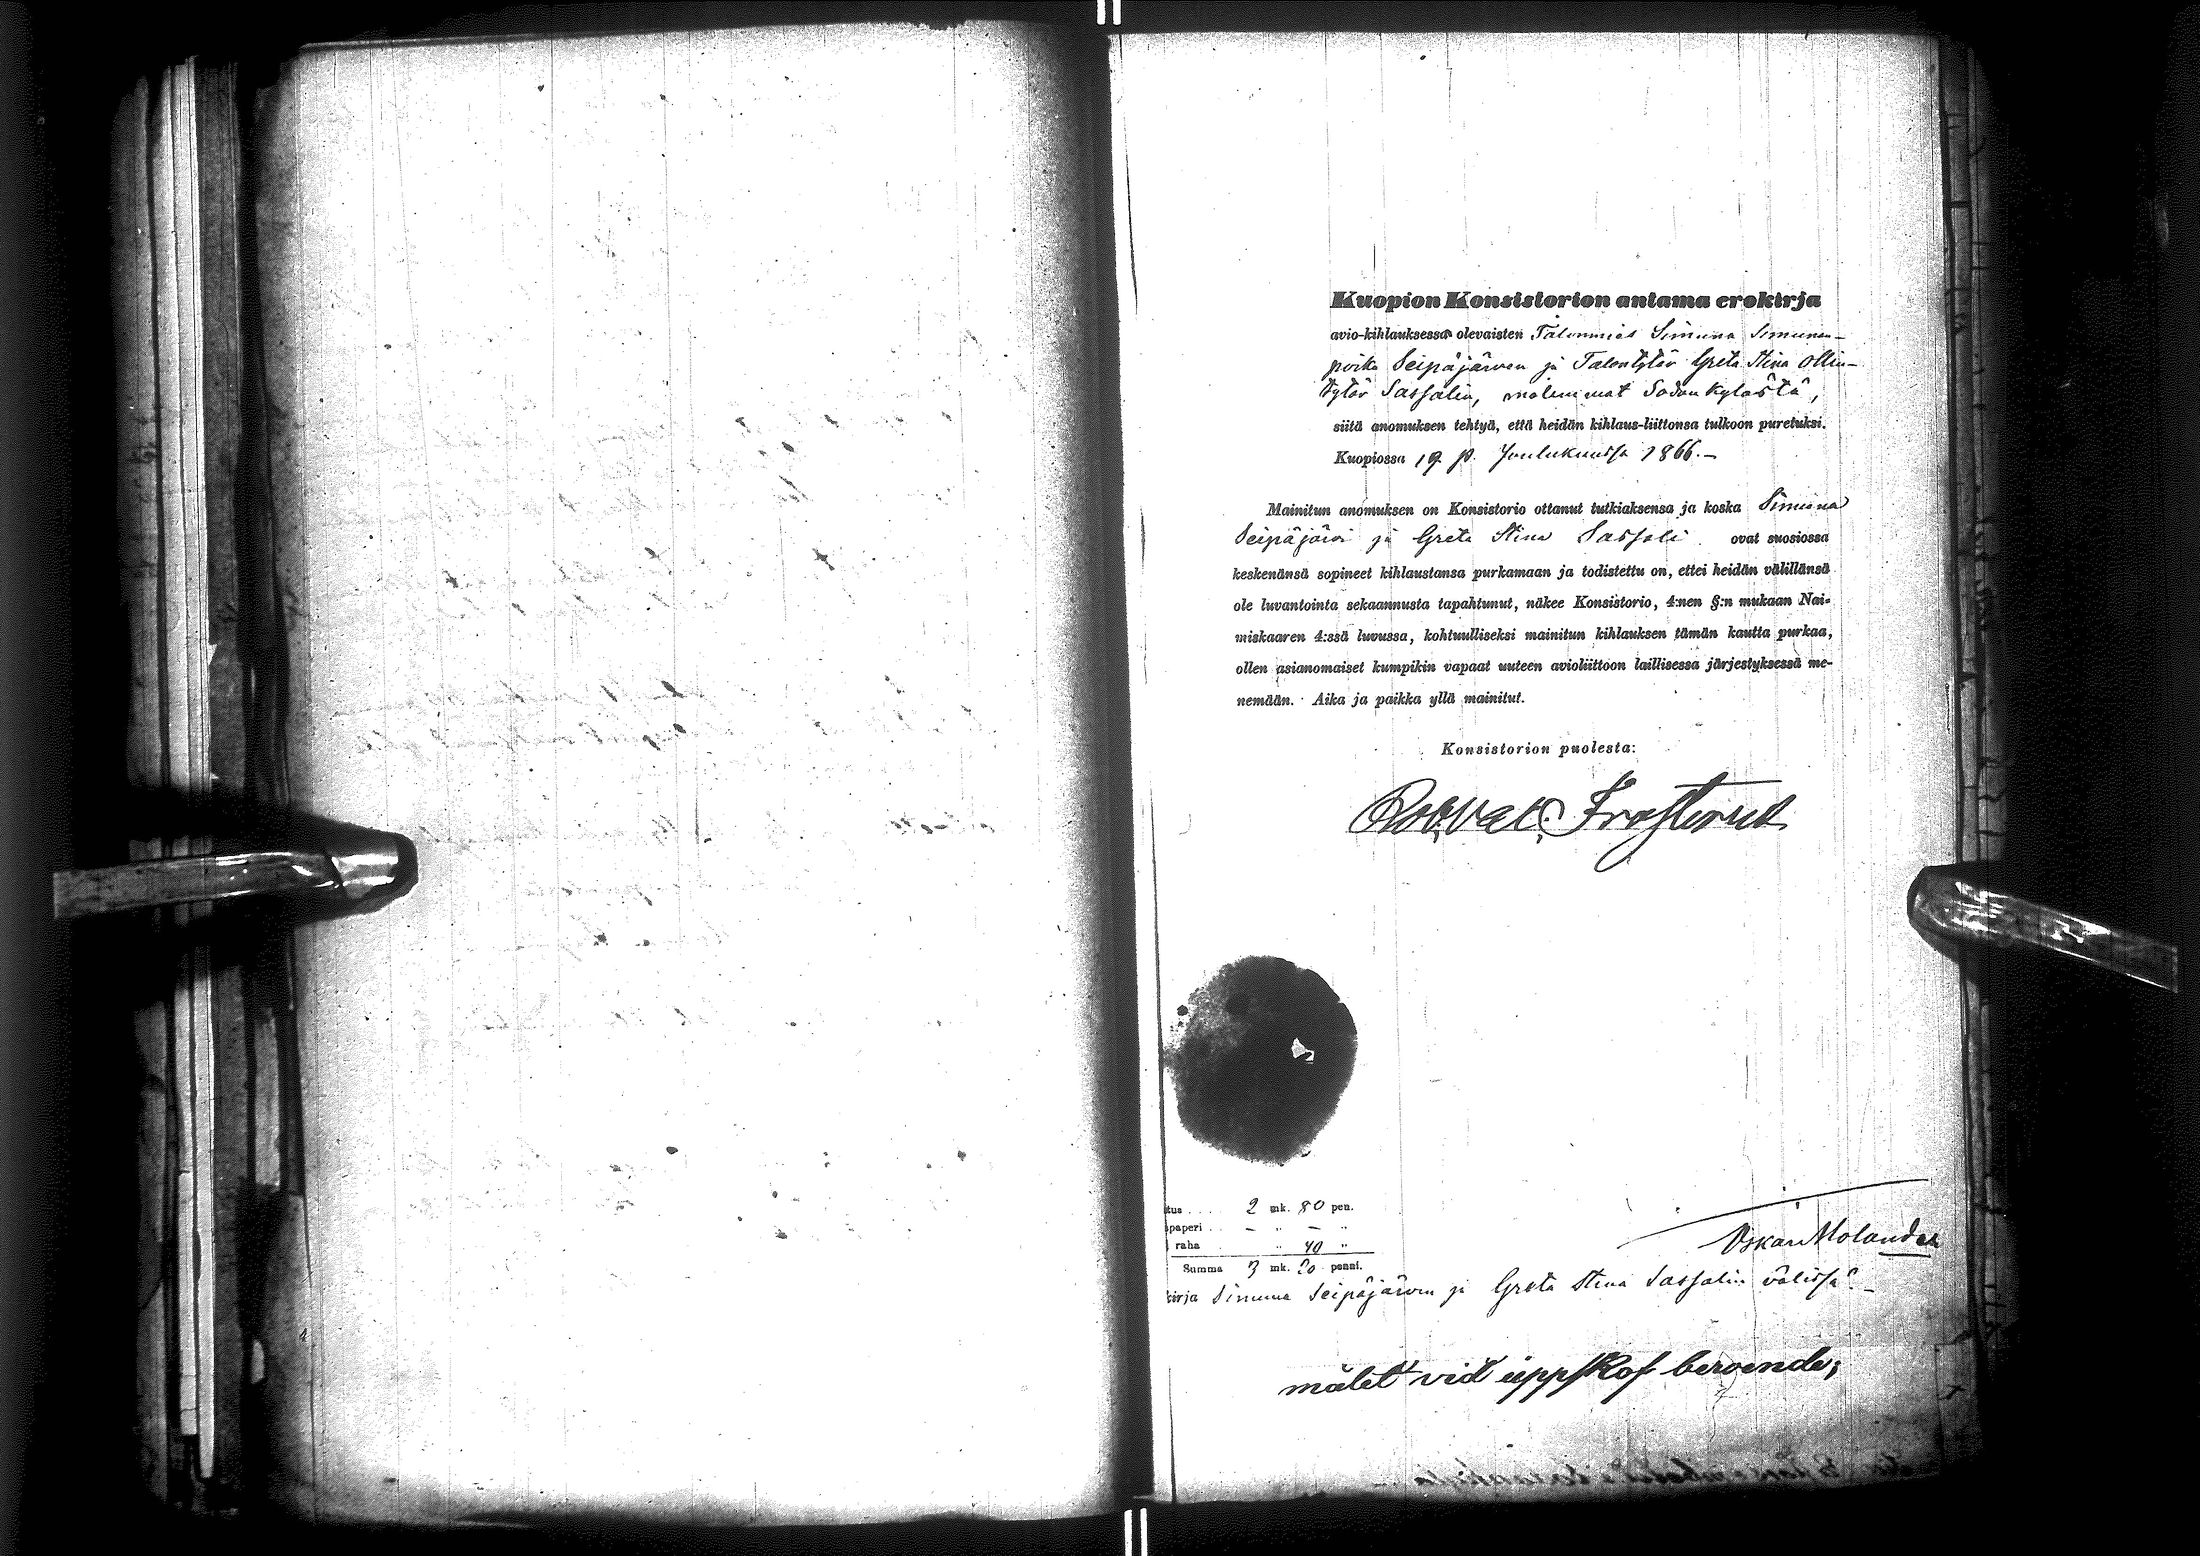 Kuopion Konsistorion antama erokirja
avio-kihlauksessa olevaisten Talonmies Simuna Simunan-
poika Seipäjärven ja Talontytär Greta Stina Ollin-
tytär Sassalin, molemmat Sodankylästä,
siitä anomuksen tehtyä, että heidän kihlaus-liittonsa tulkoon puretuksi.
Kuopiossa 19 p. Joulukuussa 1866.—
Mainitun anomuksen on Konsistorio ottanut tutkiaksensa ja koska Simuna
Seipäjärvi ja Greta Stina Sassali ovat suosiossa
keskenänsä sopineet kihlaustansa purkamaan ja todistettu on, ettei heidän välillänsä
ole luvantointa sekaannusta tapahtunut, näkee Konsistorio, 4:nen §:n mukaan Nai-
miskaaren 4:ssä luvussa, kohtuulliseksi mainitun kihlauksen tämän kautta purkaa,
ollen asianomaiset kumpikin vapaat uuteen avioliittoon laillisessa järjestyksessä me-
nemään. Aika ja paikka yllä mainitut.
Konsistorion puolesta:
Frosterus
tus . . . . 2 mk. 80 pen.
paperi . . — " — "
raha " 40 "
Summa 3 mk. 20 penni.
Oskar Molander
kirja Simuna Seipäjärven ja Greta Stina Sassalin välissä.—
målet vid uppskof beroende;